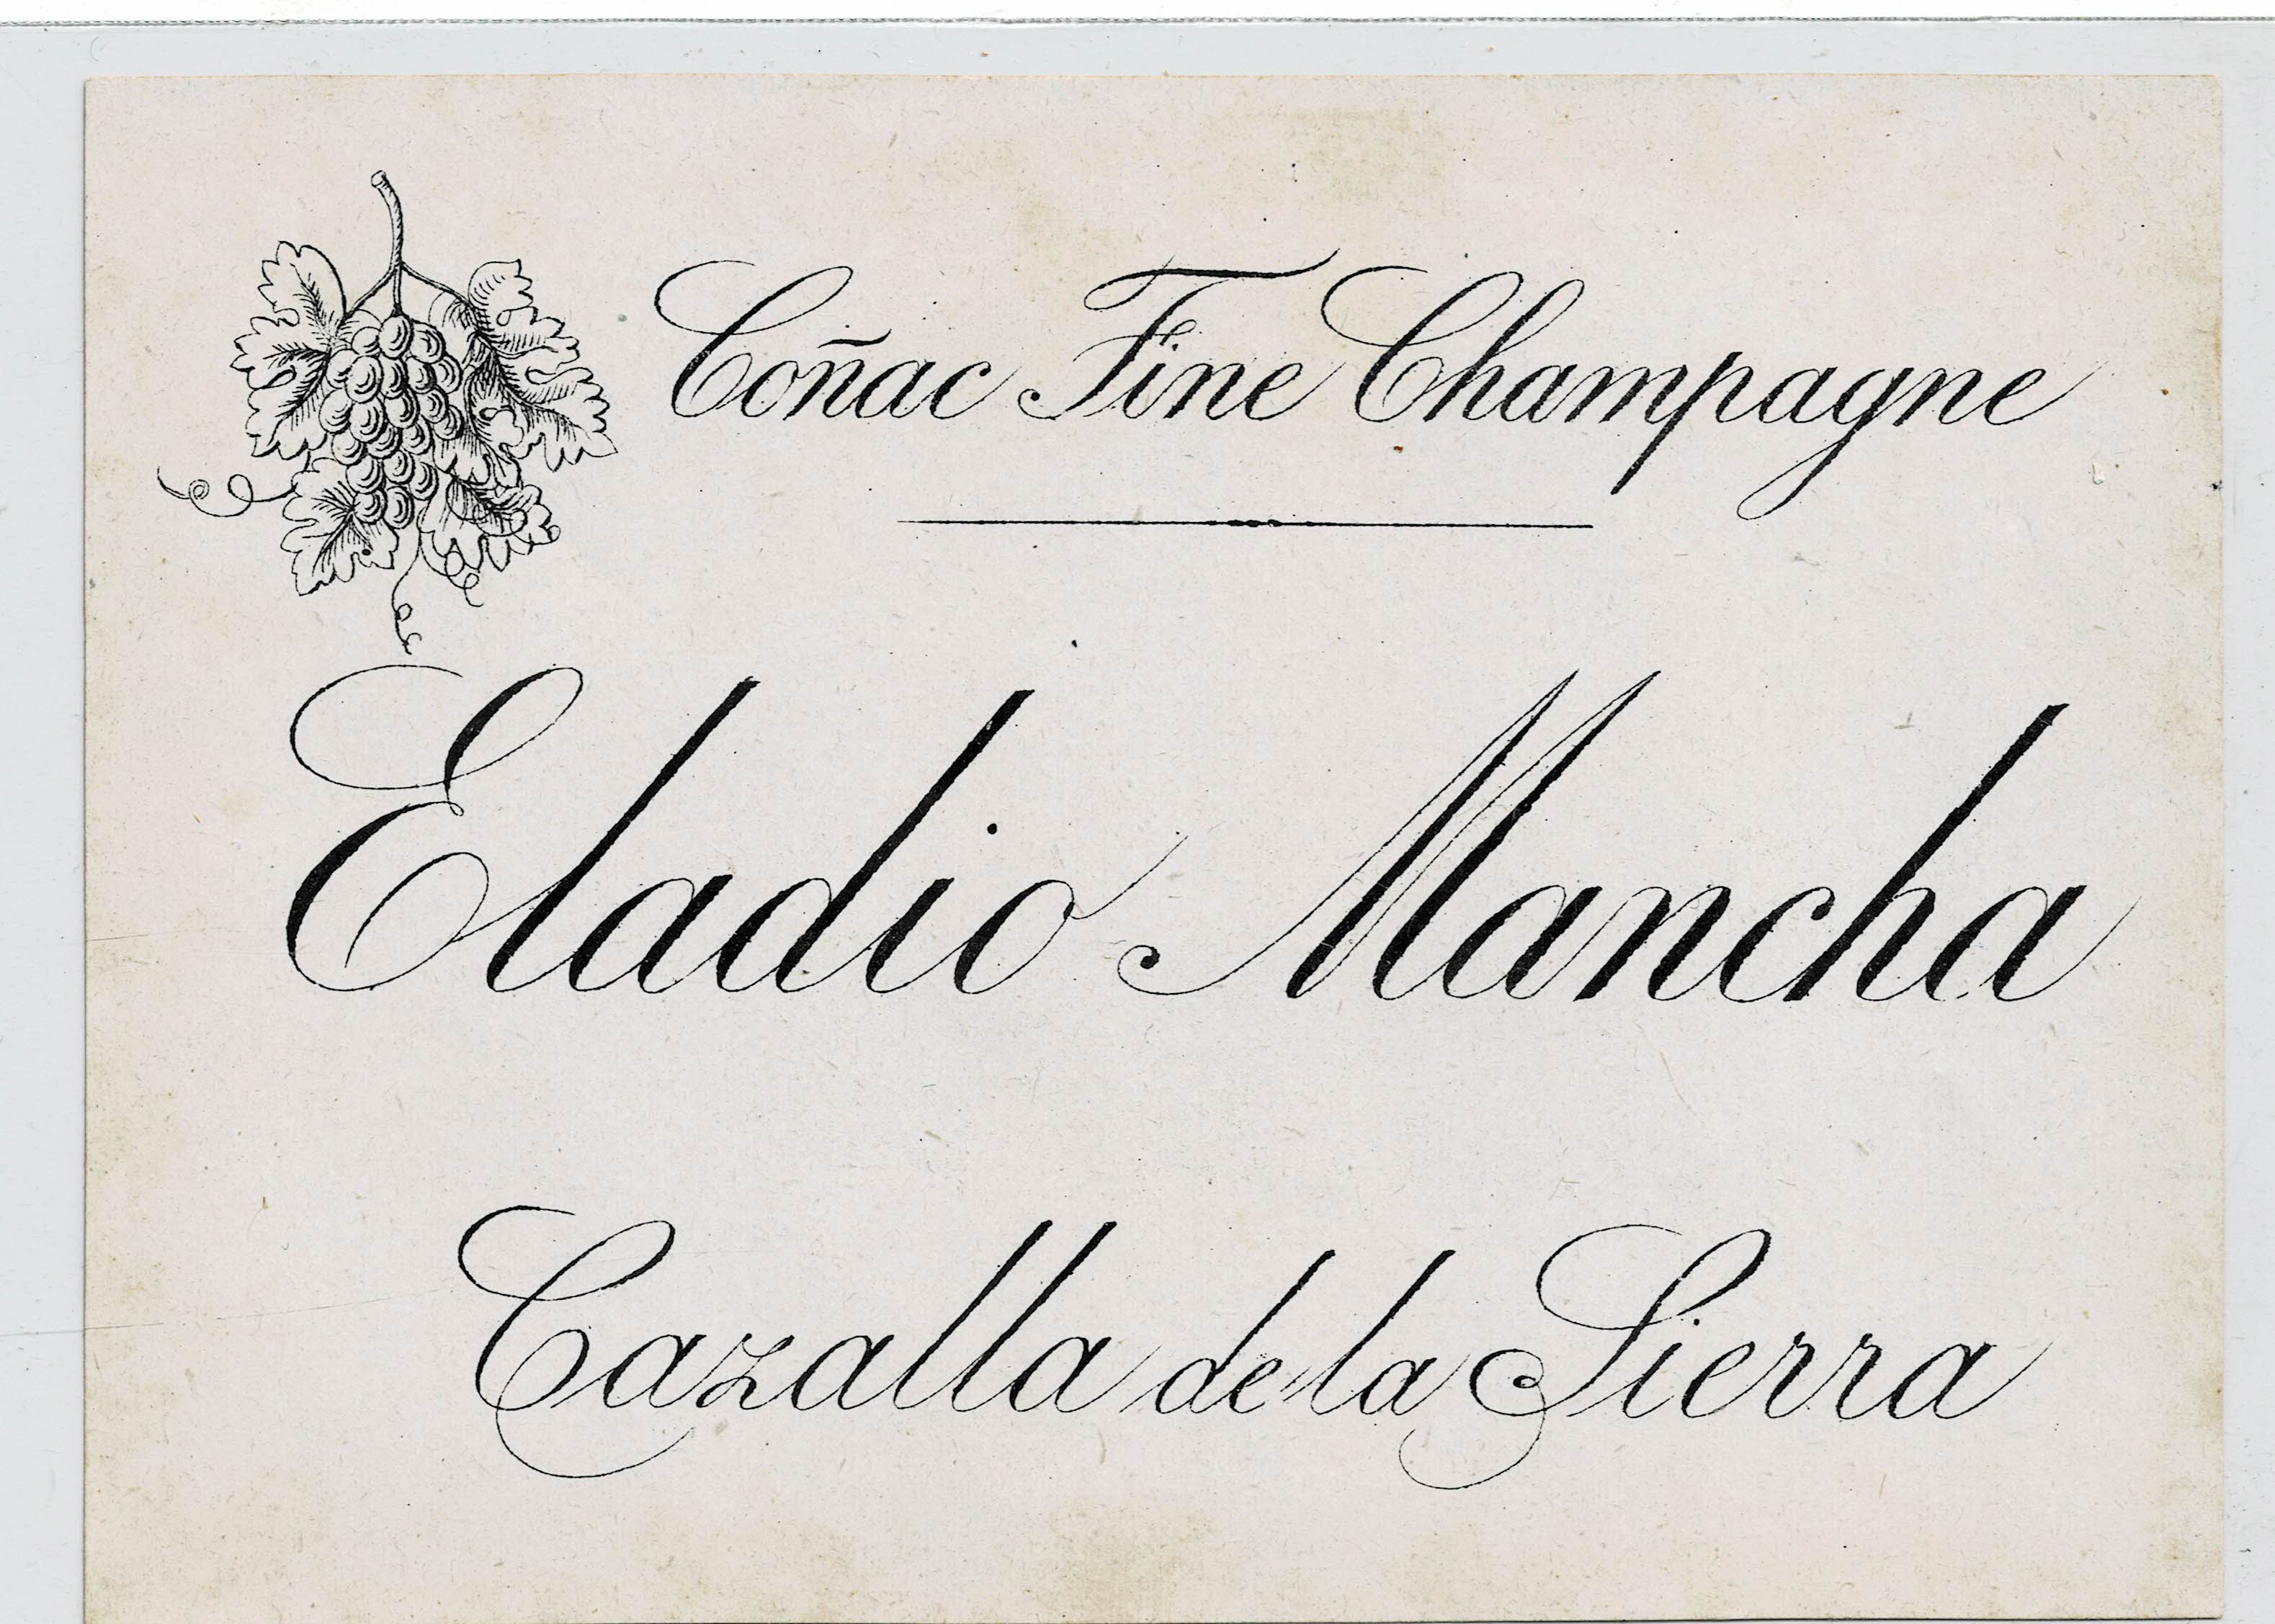 Coñac Fine Champagne
Eladio Mancha
Cazalla de la Sierra